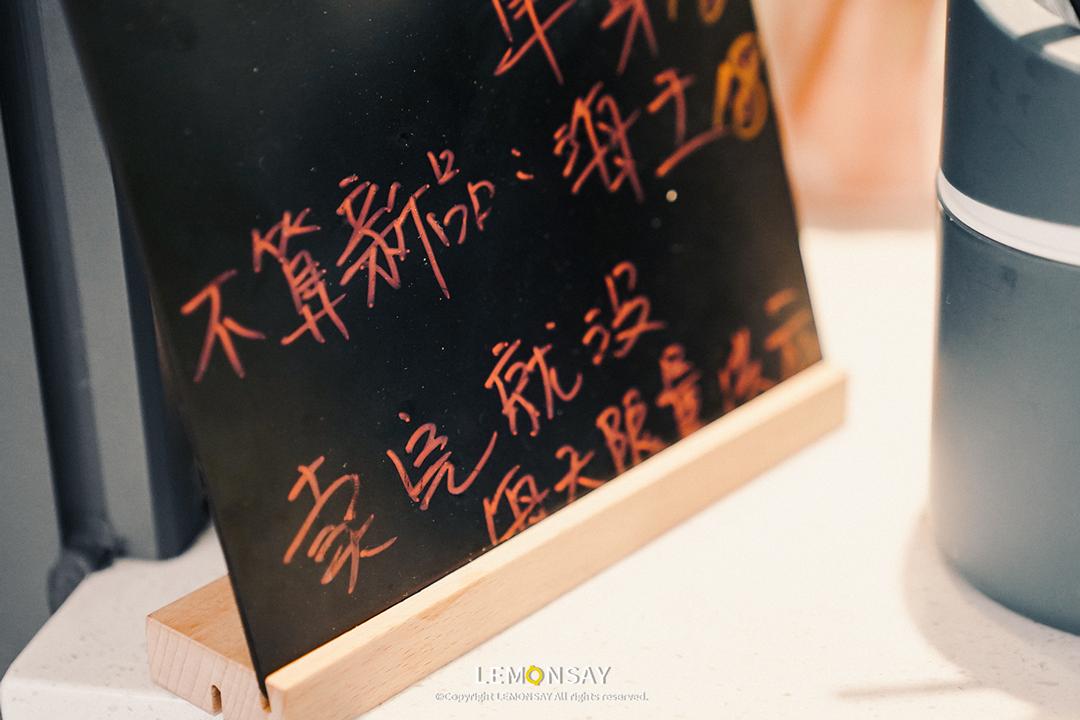 单身
不算新品：海王18
卖完就没
每天限量供应
LEMONSAY
©Copyright LEMONSAY All rights reserved.